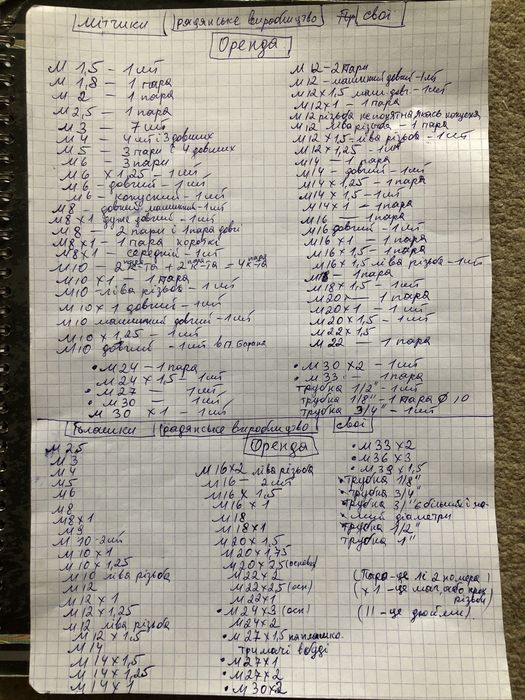 Мітчики Радянське виробництво свої
Оренда
М 1,5 - 1 шт
М 1,8 - 1 пара
М 2 - 1 пара
М 2,5 - 1 пара
М 3 - 7 шт
М 4 - 4 шт і 3 довших
М 5 - 3 пари і 4 довших
М 6 - 3 пари
М 6 x 1,25 - 1 шт
М 6 - довгий - 1 шт
М 6 - конусний - 1 шт
М 8 - довгий машинний - 1 шт
М8 x 1 дуже довгий - 1 шт
М 8 - 2 пари і 1 пара довг
М8 x 1 - 1 пара короткі
М8 x 1 - середній - 1 шт
М10 -
М10 x 1 - 1 пара
М10 - ліва різьба - 1 шт
М10 x 1 довгий - 1 шт
М10 машинний довгий - 1 шт
М10 x 1,25 - 1 шт
М10 довгий - 1 шт
М 12 - 2 пари
М12 - машинний довгий - 1 шт
М12 x 1,5 маш довг - 1 шт
М12 x 1 - 1 пара
М12 різьба непонятна якась конусна
М12 ліва різьба - 1 пара
М12 x 1,5 - ліва різьба - 1 шт
М12 x 1,25 - 1 шт
М14 - 1 пара
М14 - довгий - 1 шт
М14 x 1,25 - 1 пара
М14 x 1,5 - 1 шт
М14 x 1 - 1 пара
М16 - 1 пара
М16 довгий - 1 шт
М16 x 1 - 1 пара
М16 x 1,5 - 1 пара
М16 x 1,5 ліва різьба - 1 шт
М18 - 1 пара
М18 x 1,5 - 1 шт
М20 - 1 пара
М20 x 1 - 1 шт
М20 x 1,5 - 1 шт
М22 x 1,5
М 22 - 1 пара
• М24 - 1 пара
М24 x 1,5 - 1 шт
• М27 - 1 шт
• М30 - 1 шт
М 30 x 1 - 1 шт
• М30 x 2 - 1 шт
• М33 - 1 пара
трубна 1/2" - 1 шт
трубна 1/8" - 1 пара
трубна 3/4" - 1 шт
Плашки Радянське виробництво свої
Оренда
М 2,5
М3
М4
М5
М6
М8
М8 x 1
М9
М10 - 2 шт
М10 x 1
М10 x 1,25
М10 ліва різьба
М12
М12 x 1
М12 x 1,25
М12 ліва різьба
М12 x 1,5
М14
М14 x 1,5
М14 x 1,25
М14 x 1
М16x2 ліва різьба
М16 - 2 шт
М16 x 1,5
М16 x 1
М18
М18 x 1
М20 x 1,5
М20 x 1,75
М20 x 2,5 (основн)
М22 x 2
М22 x 2,5 (осн)
М22 x 1
• М24 x 3 (осн)
М24 x 2
• М27 x 1,5
тримачі в буді
• М27 x 1
• М27 x 2
• М30 x 2
• М33 x 2
• М36 x 3
• М39 x 1,5
• трубна 1/8"
• трубна 3/4"
• трубна 3/4" є більший
діаметри
трубна 1/2"
трубна 1"
(Пара - це 1 і 2 номера)
(x 1 - це мала, або
різьби)
(" - це дюйми).